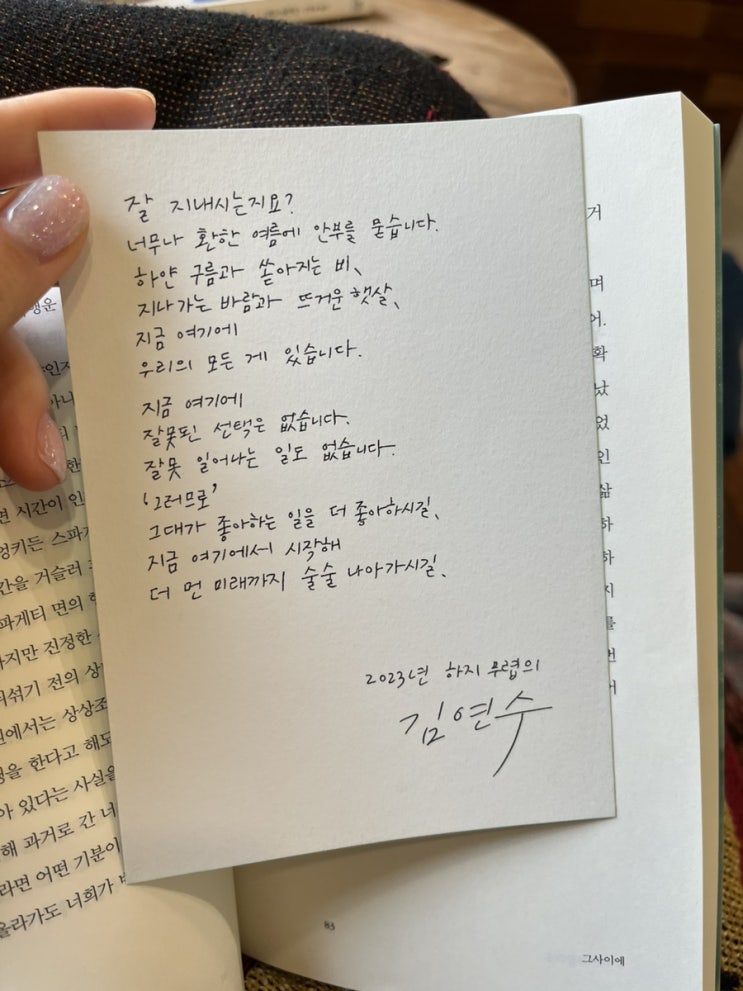 잘 지내시는지요?
너무나 환한 여름에 안부를 묻습니다.
하얀 구름과 쏟아지는 비,
지나가는 바람과 뜨거운 햇살,
지금 여기에
우리의 모든 게 있습니다.
지금 여기에
잘못된 선택은 없습니다.
잘못 일어나는 일도 없습니다.
'그러므로'
그대가 좋아하는 일을 더 좋아하시길,
지금 여기에서 시작해
더 먼 미래까지 술술 나아가시길,
2023년 하지 무렵의
김연수
행운
면 시간이 인
엉키든 스파게
간을 거슬러
파게티 면의
지만 진정한
뒤섞기 전의 상
원에서는 상상조
정을 한다고 해도
아 있다는 사실을
해 과거로 간 너
라면 어떤 기분이
올라가도 너희가
거
며
어.
확
났
었
인
삶
하
하
지
를
번
83
그사이에